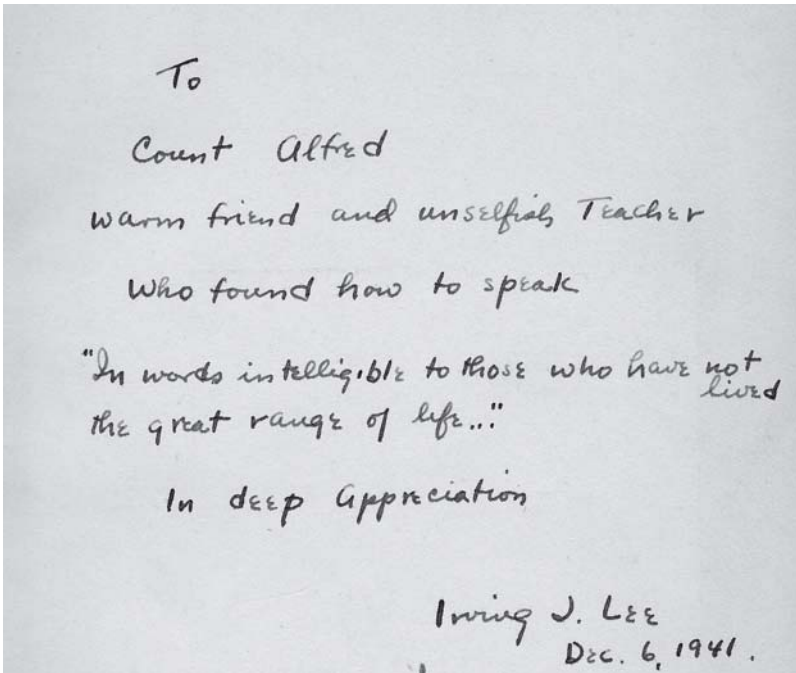 To
Count Alfred
warm friend and unselfish Teacher
Who found how to speak
"In words intelligible to those who have not
lived
the great range of life..."
In deep Appreciation
Irving J. Lee
Dec. 6, 1941.